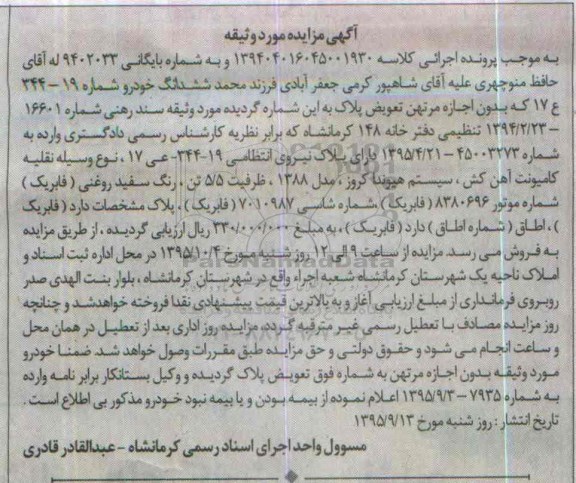 آگهی مزایده مورد وثیقه
به موجب پرونده اجرائی کلاسه ۱۳۹۴۰۴۰۱۶۰۴۵۰۰۱۹۳۰ و به شماره بایگانی ۹۴۰۲۰۳۳ له آقای
حافظ منوچهری علیه آقای شاهپور کرمی جعفر آبادی فرزند محمد ششدانگ خودرو شماره ۱۹ – ۳۴۴
ع ۱۷ که بدون اجازه مرتهن تعویض پلاک به این شماره گردیده مورد وثیقه سند رهنی شماره ۱۶۶۰۱
– ۱۳۹۴/۲/۲۳ تنظیمی دفتر خانه ۱۴۸ کرمانشاه که برابر نظریه کارشناس رسمی دادگستری وارده به
شماره ۴۵۰۰۳۲۷۳ – ۱۳۹۵/۴/۲۱ دارای پلاک نیروی انتظامی ۱۹-۳۴۴- عی ۱۷ ، نوع وسیله نقلیه
کامیونت آهن کش ، سیستم هیوندا کروز ، مدل ۱۳۸۸ ، ظرفیت ۵/۵ تن ، رنگ سفید روغنی ( فابریک )
شماره موتور ۸۳۸۰۶۹۶ ( فابریک ) ،شماره شاسی ۷۰۱۰۹۸۷ ( فابریک ) ، پلاک مشخصات دارد ( فابریک
) ، اطاق ( شماره اطاق ) دارد ( فابریک ) ، به مبلغ ۳۳۰/۰۰۰/۰۰۰ ریال ارزیابی گردیده ، از طریق مزایده
به فروش می رسد. مزایده از ساعت ۹ الی ۱۲ روز شنبه مورخ ۱۳۹۵/۱۰/۴ در محل اداره ثبت اسناد و
املاک ناحیه یک شهرستان کرمانشاه شعبه اجراء واقع در شهرستان کرمانشاه ، بلوار بنت الهدی صدر
روبروی فرمانداری از مبلغ ارزیابی آغاز و به بالاترین قیمت پیشنهادی نقدا فروخته خواهدشد و چنانچه
روز مزایده مصادف با تعطیل رسمی غیر مترقبه گردد، مزایده روز اداری بعد از تعطیل در همان محل
و ساعت انجام می شود و حقوق دولتی و حق مزایده طبق مقررات وصول خواهد شد. ضمنا خودرو
مورد وثیقه بدون اجازه مرتهن به شماره فوق تعویض پلاک گردیده و وکیل بستانکار برابر نامه وارده
به شماره ۷۹۳۵ – ۱۳۹۵/۹/۳ اعلام نموده از بیمه بودن و یا بیمه نبود خودرو مذکور بی اطلاع است .
تاریخ انتشار : روز شنبه مورخ ۱۳۹۵/۹/۱۳
مسوول واحد اجرای اسناد رسمی کرمانشاه – عبدالقادر قادری